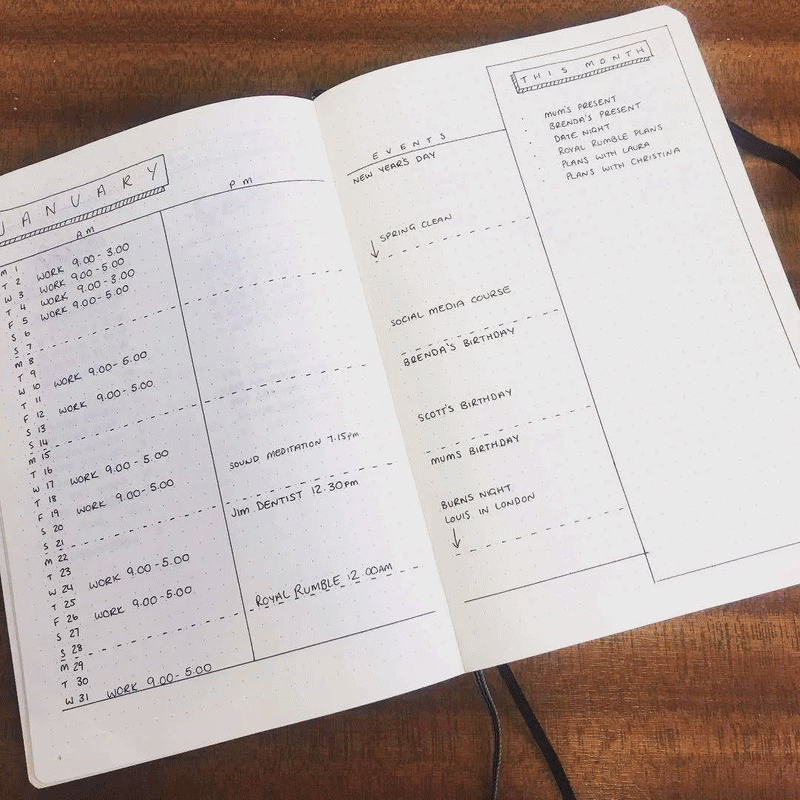 JANUARY
AM
PM
M 1
T 2 WORK 9.00-3.00
W 3 WORK 9.00-5.00
T 4 WORK 9.00-3.00
F 5 WORK 9.00-5.00
S 6
S 7
M 8
T 9
W 10 WORK 9.00-5.00
T 11
F 12 WORK 9.00-5.00
S 13
S 14
M 15
T 16
W 17 WORK 9.00-5.00
T 18
F 19 WORK 9.00-5.00
S 20
S 21
M 22
T 23
W 24 WORK 9.00-5.00
T 25
F 26 WORK 9.00-5.00
S 27
S 28
M 29
T 30
W 31 WORK 9.00-5.00
SOUND MEDITATION 7.15pm
Jim DENTIST 12.30pm
ROYAL RUMBLE 12.00AM
EVENTS
NEW YEAR'S DAY
SPRING CLEAN
SOCIAL MEDIA COURSE
BRENDA'S BIRTHDAY
SCOTT'S BIRTHDAY
MUMS BIRTHDAY
BURNS NIGHT
LOUIS IN LONDON
THIS MONTH
· MUM'S PRESENT
· BRENDA'S PRESENT
· DATE NIGHT
· ROYAL RUMBLE PLANS
· PLANS WITH LAURA
· PLANS WITH CHRISTINA